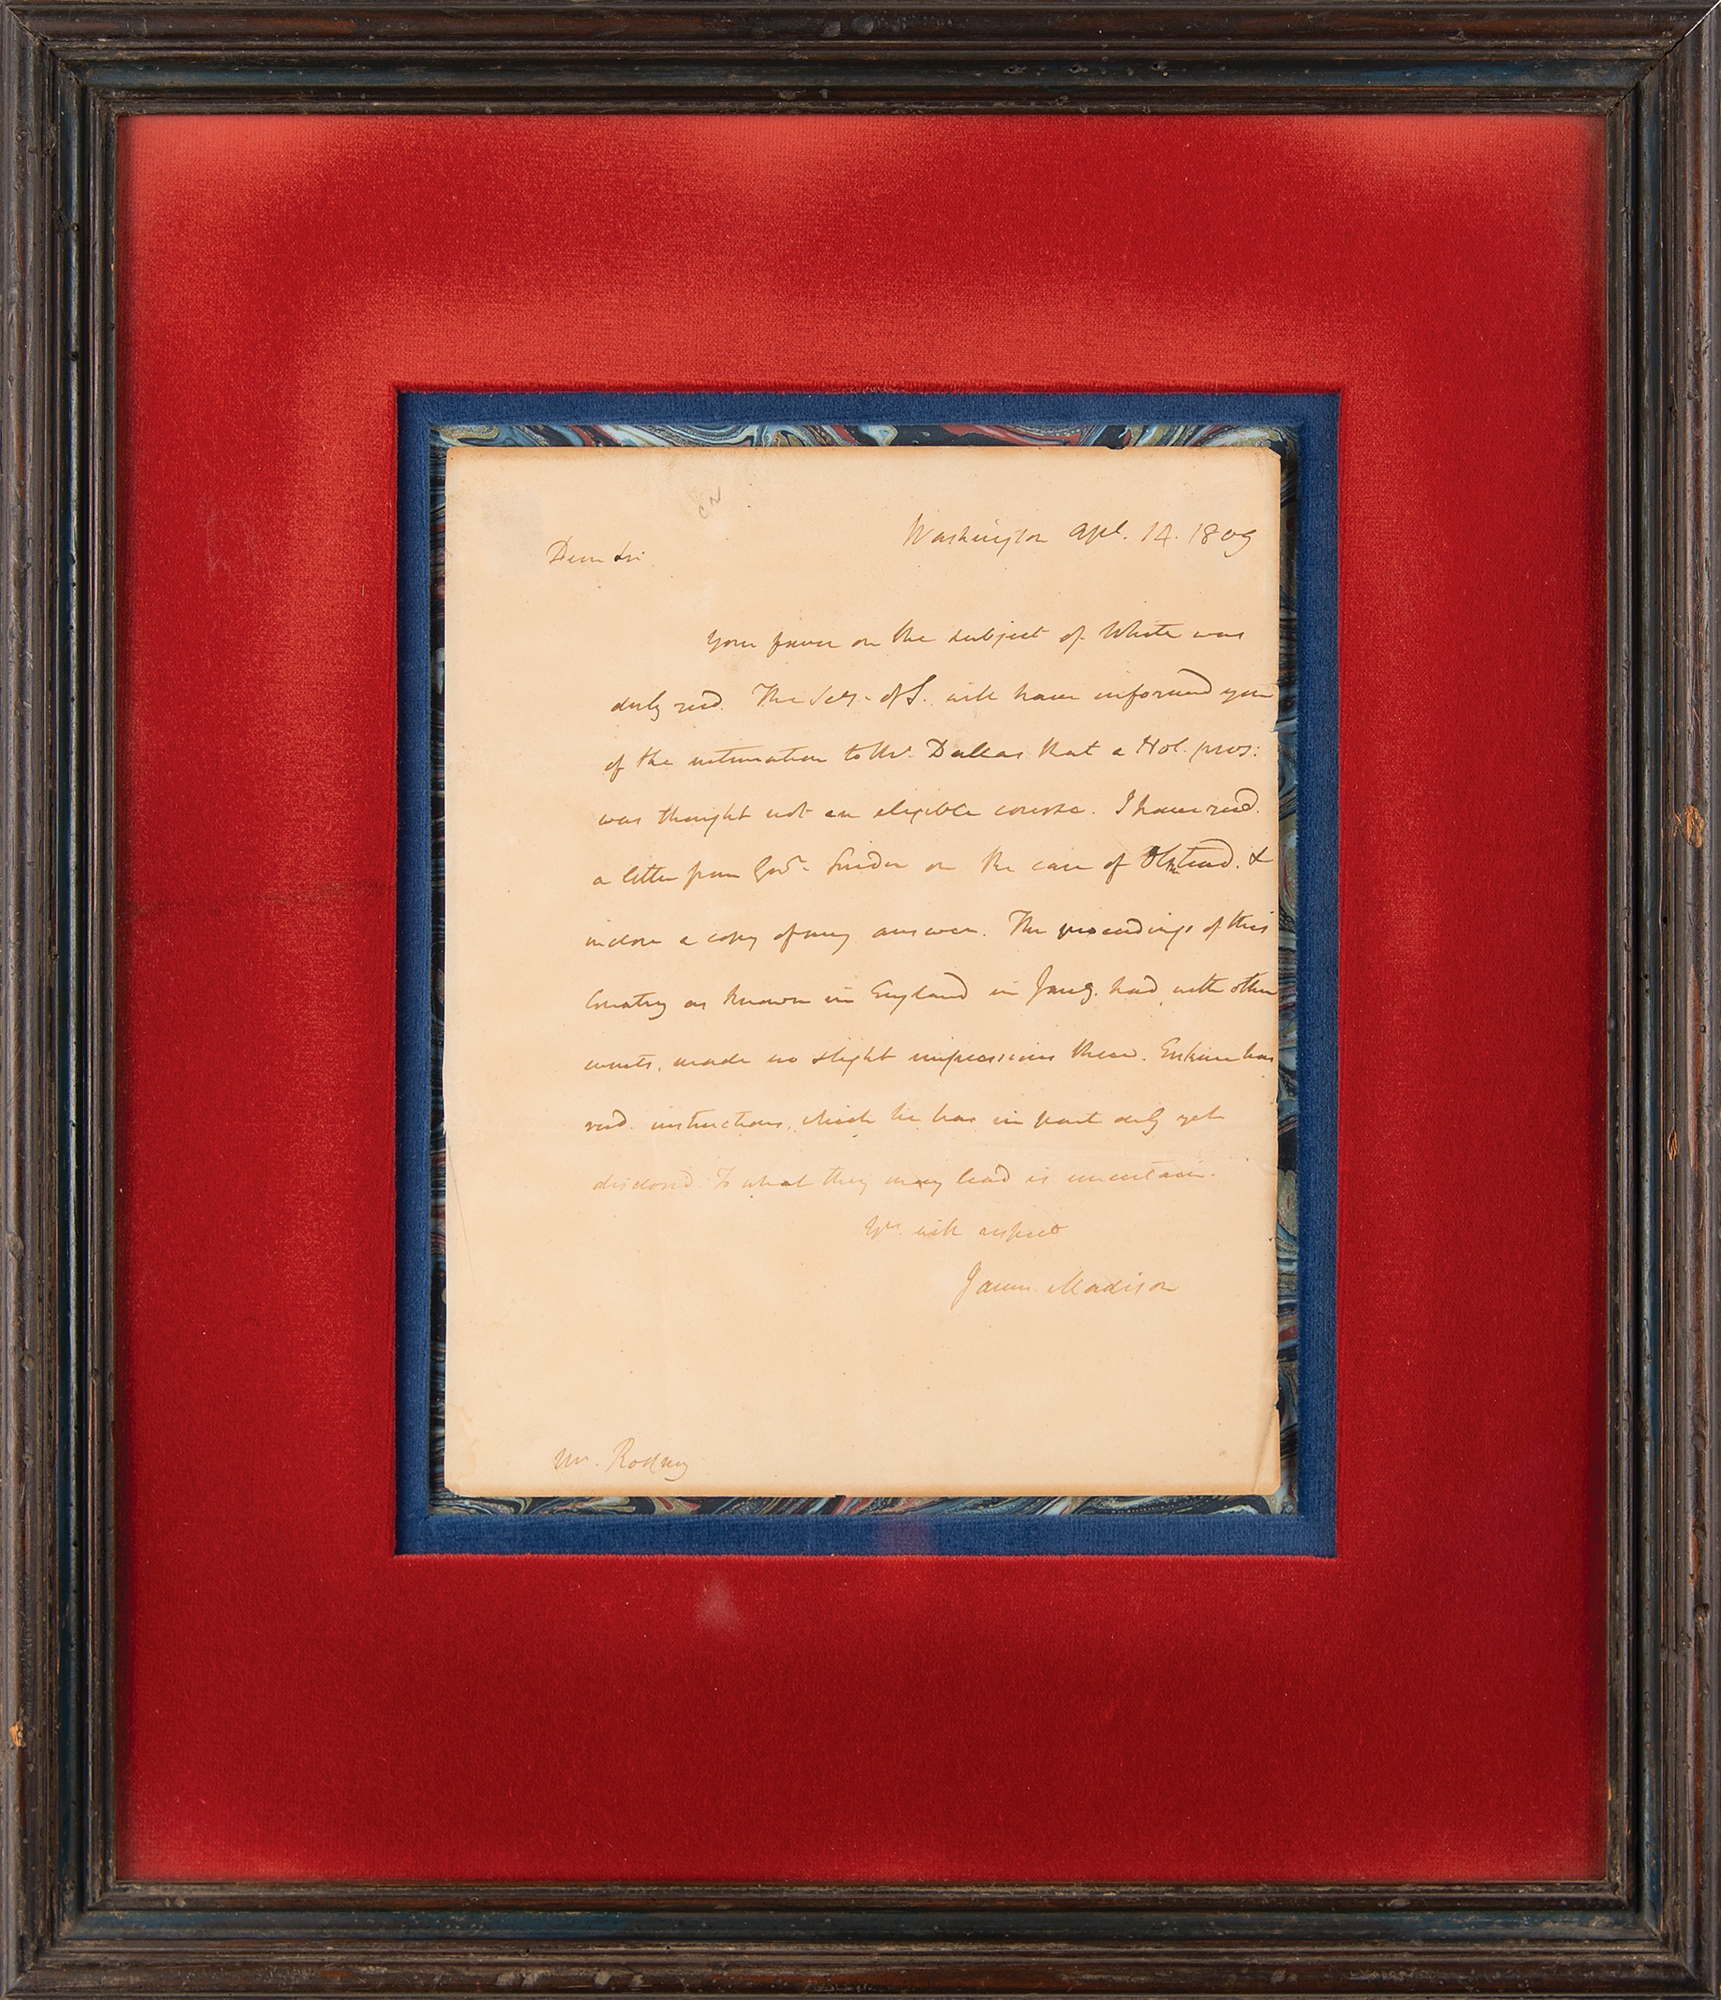 Washington Apl. 14. 1809
Dear Sir
Your favor on the subject of White was
duly recd. The Secy. of S. will have informed you
of the intimation to Mr. Dallas that a Nol. pros:
was thought not an eligible course. I have recd.
a letter from Govr. Snider on the case of Olmstead. &
inclose a copy of my answer. The proceedings of this
Country as known in England in Jany. had, with other
events, made no slight impressions there. Erskine has
recd. instructions, which he has in part only yet
disclosed. To what they may lead is uncertain.
Yrs. with respect
James Madison
Mr. Rodney